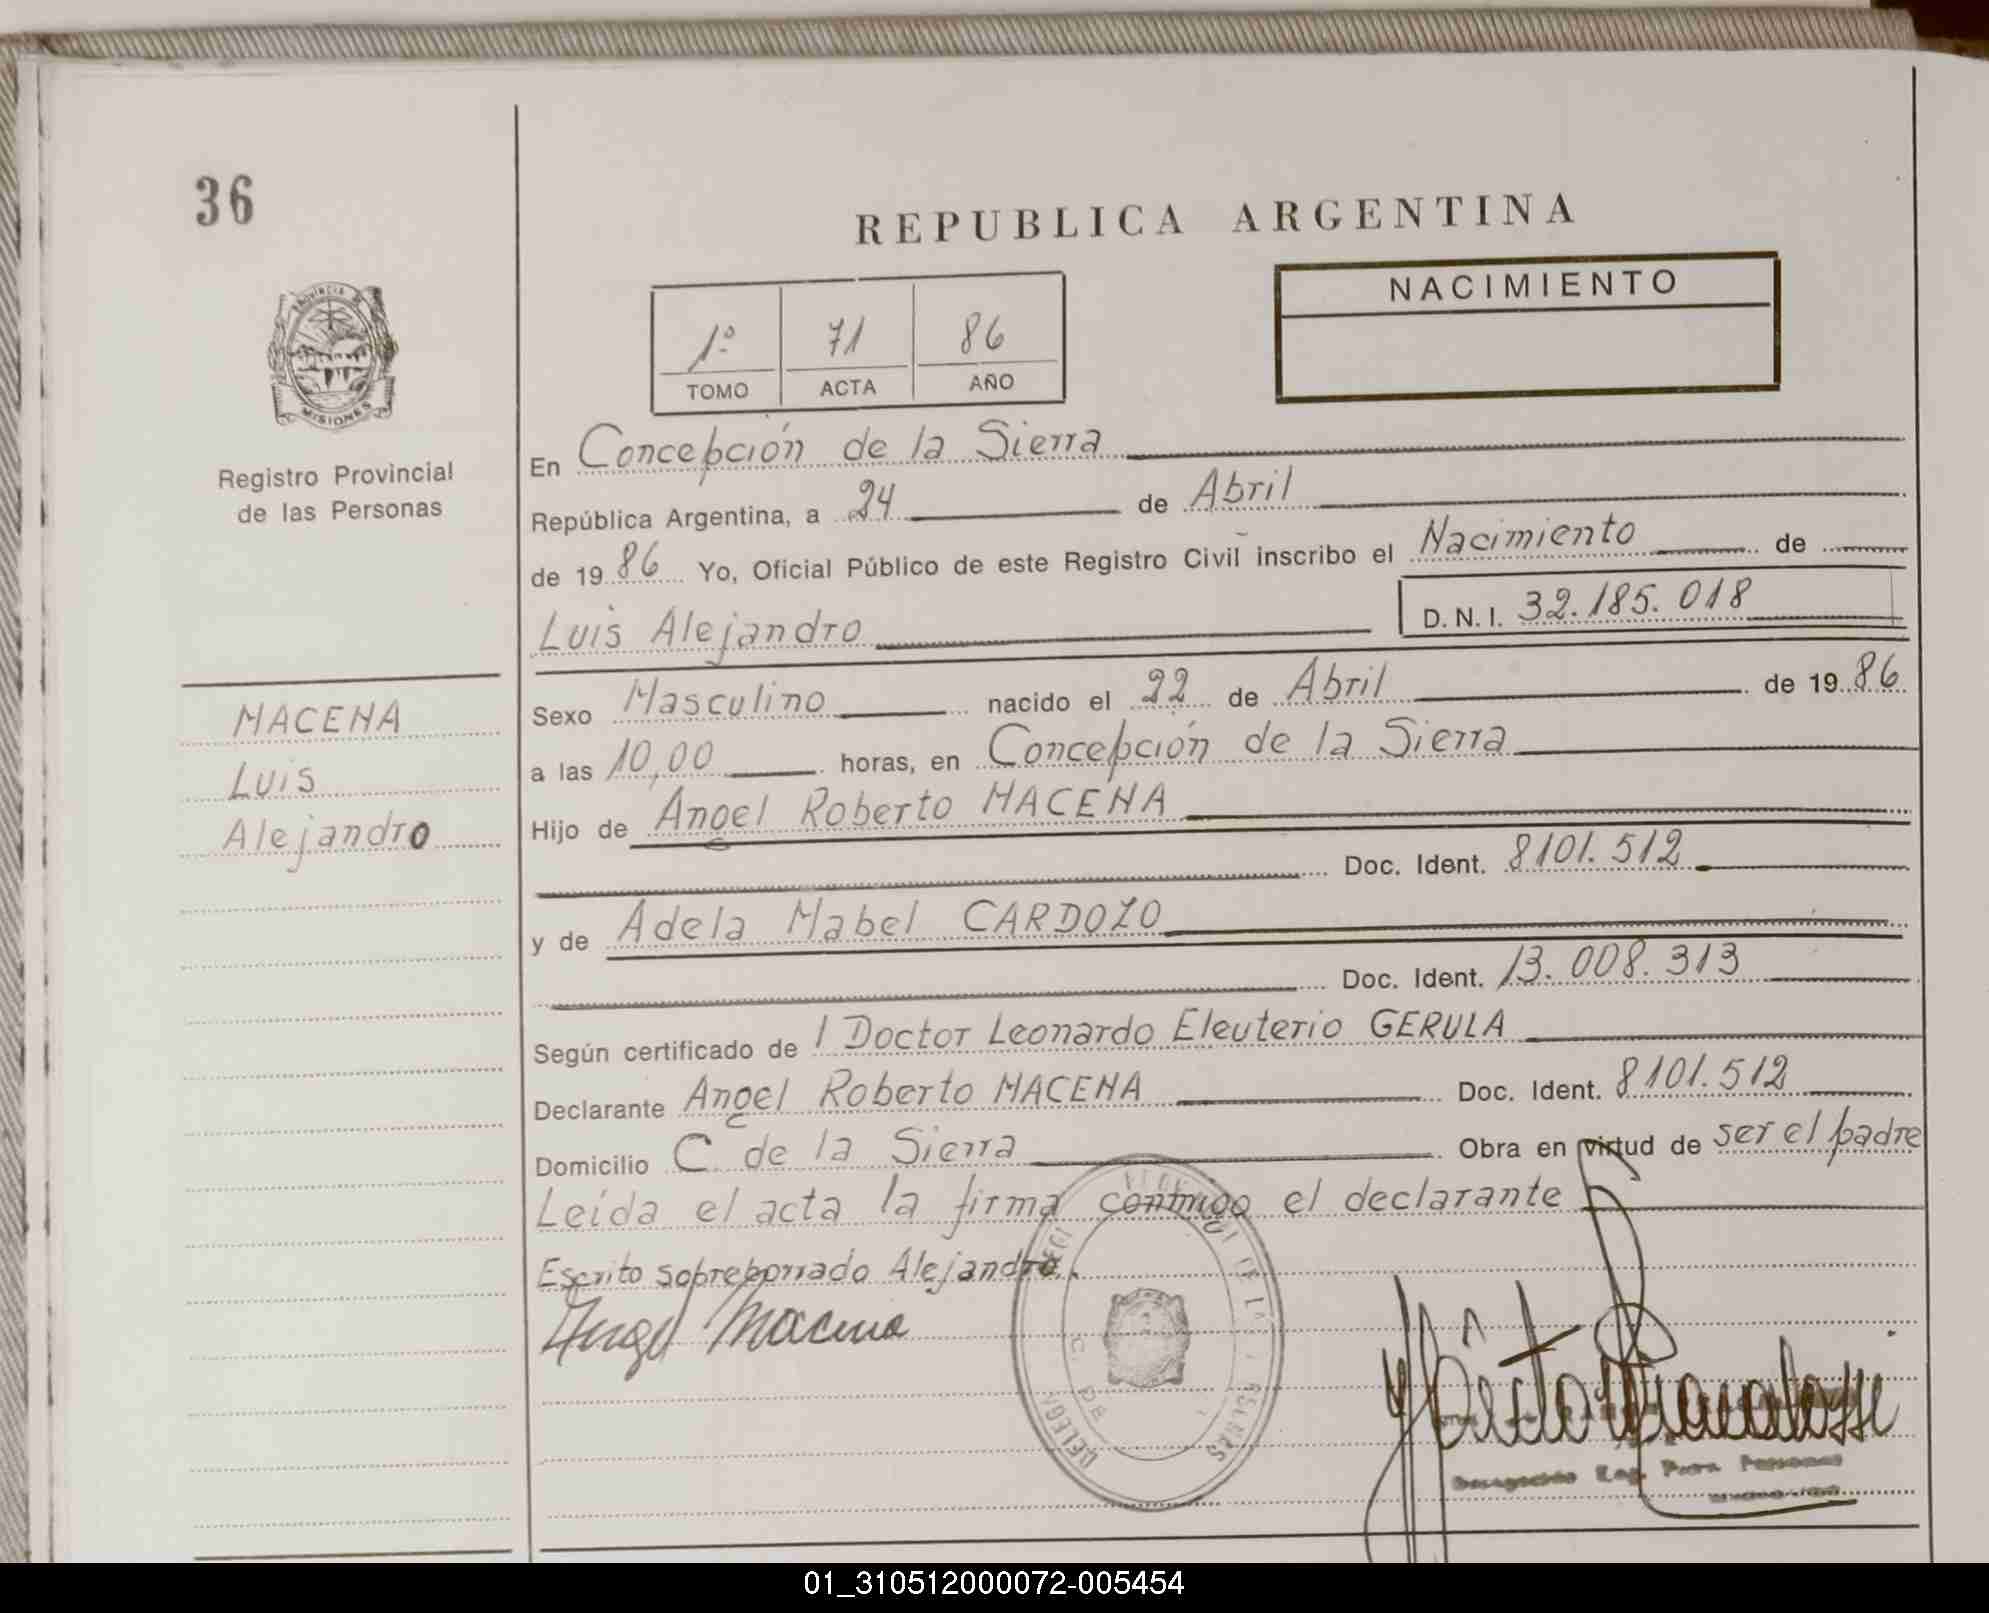 36
PROVINCIA DE
MISIONES
Registro Provincial
de las Personas
MACENA
Luis
Alejandro
REPUBLICA ARGENTINA
1º 71 86
TOMO ACTA AÑO
NACIMIENTO
En Concepción de la Sierra
República Argentina, a 24 de Abril
de 19 86 Yo, Oficial Público de este Registro Civil inscribo el Nacimiento de
Luis Alejandro D. N. I. 32.185.018
Sexo Masculino nacido el 22 de Abril de 19 86
a las 10,00 horas, en Concepción de la Sierra
Hijo de Angel Roberto MACENA
Doc. Ident. 8101.512
y de Adela Mabel CARDOZO
Doc. Ident. 13.008.313
Según certificado de l Doctor Leonardo Eleuterio GERULA
Declarante Angel Roberto MACENA Doc. Ident. 8101.512
Domicilio C. de la Sierra Obra en virtud de ser el padre
Leída el acta la firma conmigo el declarante
Escrito sobreborrado Alejandro.
Angel Macena
Delegación Reg. Prov. Personas
01_310512000072-005454